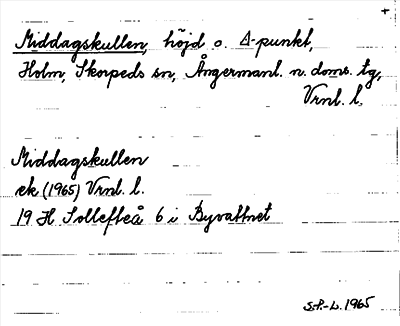 +
Middagskullen, höjd o. Δ-punkt,
Holm, Skorpeds sn, Ångermanl. n. doms. tg,
Vrnl. l.
Middagskullen
ek (1965) Vrnl. l.
19 H Sollefteå 6 i Byvattnet
S.P.-L. 1965